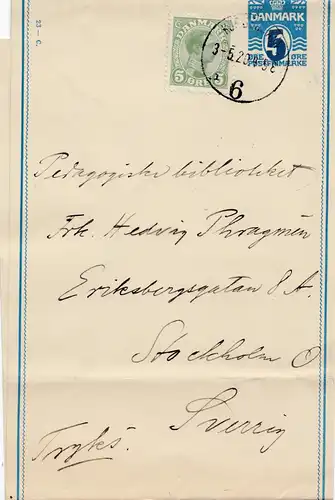 23 - C.
DANMARK
5
5 ØRE
DANMARK
5
ØRE ØRE
3-5.20
6
Pedagogiska biblioteket
Frk. Hedvig Phragmén
Eriksbergsgatan 8 A.
Stockholm Ö
Sverrig
Tryks.